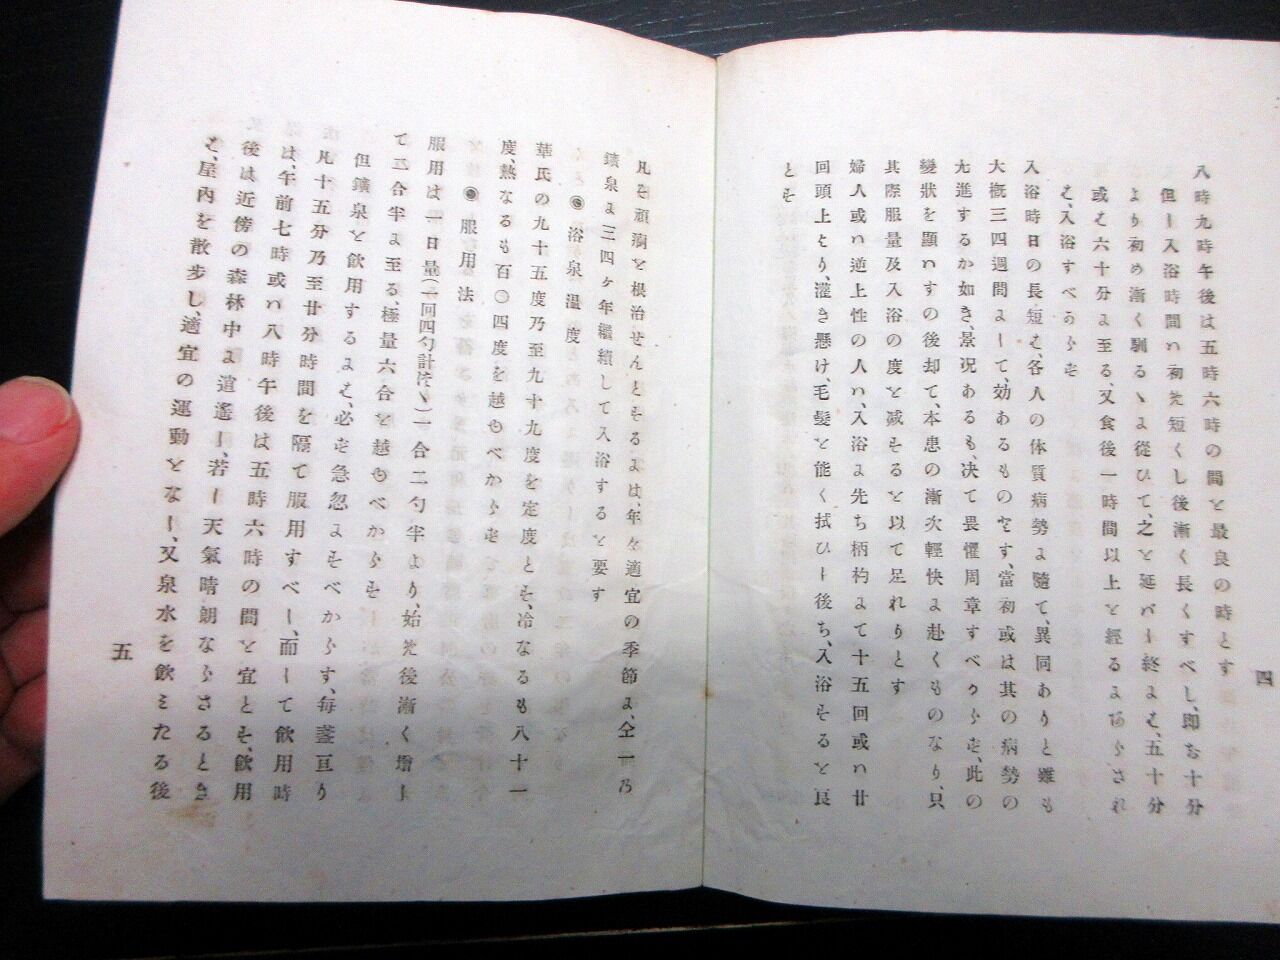 八時九時午後は五時六時の間を最良の時とす
但し入浴時間ハ初め短くし後漸く長くすべし、即ち十分
より初め漸く馴るゝに從ひて、之を延バし終には、五十分
或は六十分に至る、又食後一時間以上を經るにあらされ
は、入浴すべからす
入浴時日の長短は、各人の体質病勢に隨て、異同ありと雖も
大概三四週間にして、効あるものです、當初或は其の病勢の
亢進するか如き、景况あるも、决て畏懼周章すべからす、此の
變狀を顯ハすの後却て、本患の漸次輕快に赴くものなり、只
其際服量及入浴の度を减するを以て足れりとす
婦人或ハ逆上性の人ハ、入浴に先ち柄杓にて十五回或ハ廿
回頭上より、灌き懸け、毛髮を能く拭ひし後ち、入浴するを良
とす
四
凡そ頑痼を根治せんとするには、年々適宜の季節に、仝一乃
鑛泉に三四ヶ年繼續して入浴するを要す
◉浴泉温度
華氏の九十五度乃至九十九度を定度とす、冷なるも八十一
度、熱なるも百〇四度を越ゆべからす
◉服用法
服用は一日量(一回四勺計宛、)一合二勺半より、始め後漸く增し
て二合半に至る、極量六合を越ゆべからす
但鑛泉を飮用するには、必す急忽にすべからす、每盞亘り
凡十五分乃至廿分時間を隔て服用すべし、而して飮用時
は、午前七時或ハ八時午後は五時六時の間を宜とす、飮用
後は近傍の森林中に逍遙し、若し天氣晴朗ならさるとき
は、屋內を散步し、適宜の運動をなし、又泉水を飮ミたる後
五